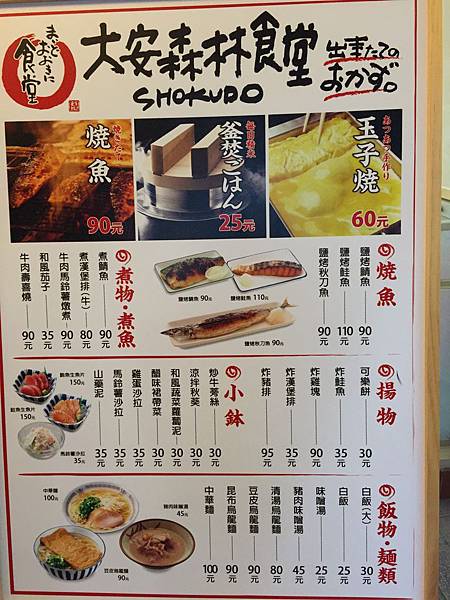 まいどおおきに
食堂
大安森林食堂
SHOKUDO
出来たての
おかず。
焼きたて
焼魚
90元
毎日精米
釜焚ごはん
25元
あつあつ手作り
玉子焼
60元
焼魚
鹽烤鯖魚 90元
鹽烤鮭魚 110元
鹽烤秋刀魚 90元
鹽烤鯖魚 90元
鹽烤鮭魚 110元
鹽烤秋刀魚 90元
煮物・煮魚
煮鯖魚 90元
煮漢堡排(牛) 80元
牛肉馬鈴薯燉煮 90元
和風茄子 35元
牛肉壽喜燒 90元
揚物
可樂餅 30元
炸鮭魚 35元
炸雞塊 90元
炸漢堡排 35元
炸豬排 95元
小鉢
炒牛蒡絲 30元
涼拌秋葵 30元
和風蔬菜蘿蔔泥 30元
醋味裙帶菜 35元
雞蛋沙拉 35元
馬鈴薯沙拉 35元
山藥泥 35元
鮪魚生魚片
150元
鮭魚生魚片
150元
馬鈴薯沙拉
35元
飯物・麵類
白飯(大) 30元
白飯 25元
味噌湯 25元
豬肉味噌湯 45元
清湯烏龍麵 80元
豆皮烏龍麵 90元
昆布烏龍麵 90元
中華麵 100元
中華麵
100元
豬肉味噌湯
45元
豆皮烏龍麵
90元